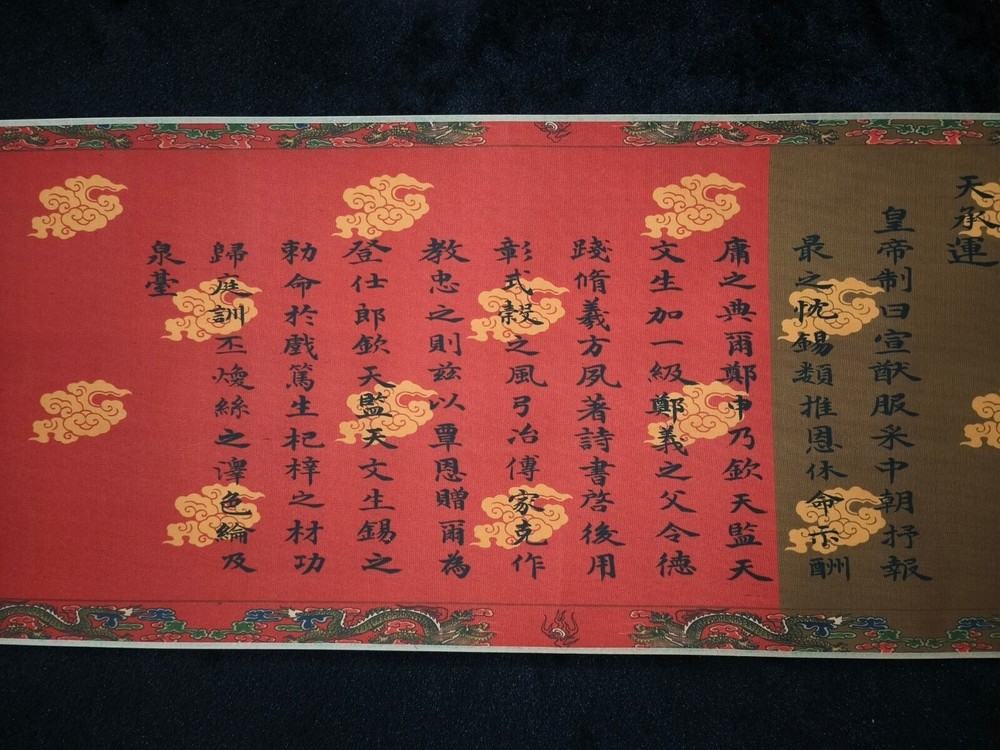 天承運
皇帝制曰宣猷服采中朝抒報
最之忱錫類推恩休命示酬
庸之典爾鄭申乃欽天監天
文生加一級鄭義之父令德
踐脩義方夙著詩書啓後用
彰式穀之風弓冶傳家克作
教忠之則茲以覃恩贈爾為
登仕郎欽天監天文生錫之
勅命於戲篤生杞梓之材功
歸庭訓丕煥絲之澤色綸及
泉臺